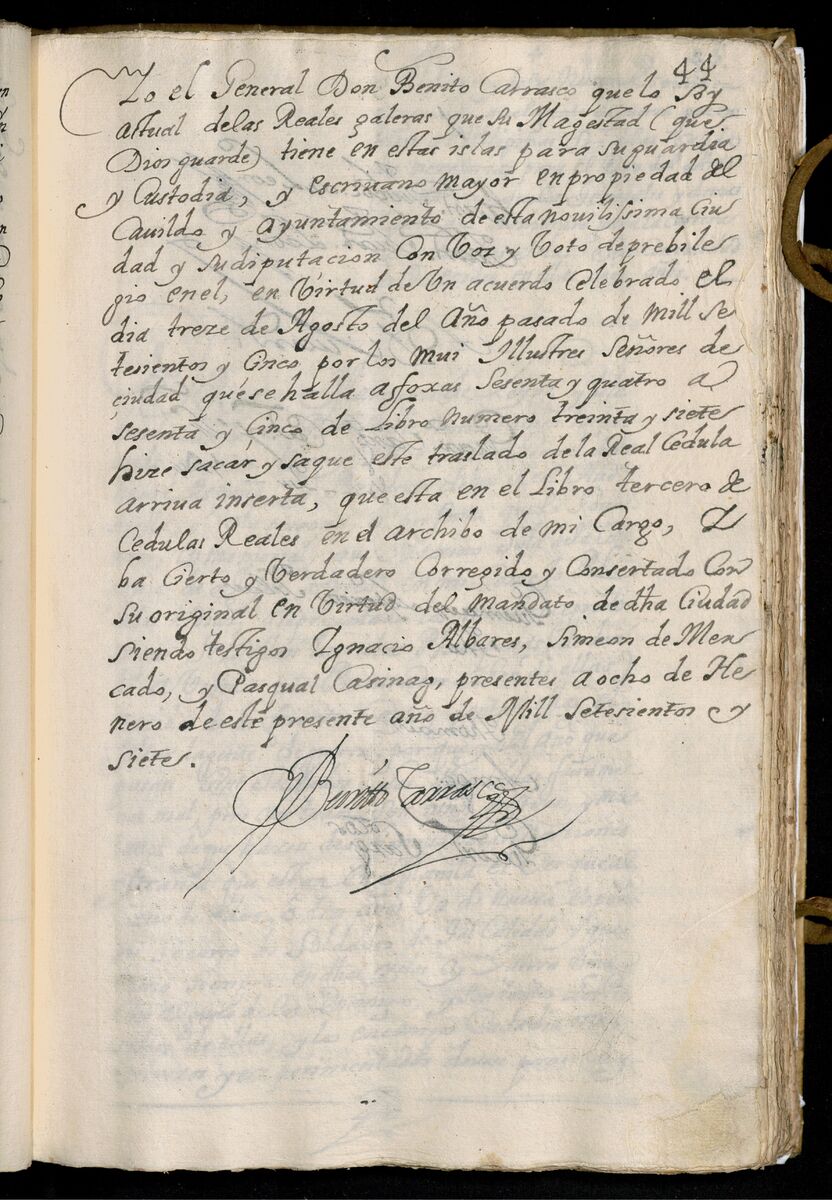 44
Yo el General Don Benito Carrasco que lo soy
actual delas Reales galeras que su Magestad (que
Dios guarde) tiene en estas islas para su guardia
y Custodia, y escrivano mayor en propiedad del
Cavildo y Ayuntamiento de esta novilissima Ciu
dad y su diputacion Con Voz y Voto de prebile
gio en el, en Virtud de Un acuerdo Celebrado el
dia treze de Agosto del Año pasado de Mill se
tesientos y Cinco por los Mui Illustres Señores de
ciudad que se halla a foxas sesenta y quatro a
sesenta y Cinco de Libro numero treinta y siete
hize sacar y saque este traslado de la Real Cedula
arriva inserta, que esta en el Libro tercero de
Cedulas Reales en el archibo de mi Cargo, Y
ba Cierto y Verdadero Corregido y Consertado Con
su original en Virtud del Mandato de dha Ciudad
siendo testigos Ygnacio Albares, Simeon de Mer
cado, y Pasqual Casinag, presentes a ocho de He
nero de este presente año de Mill Setesientos y
siete.
Benito Carrasco